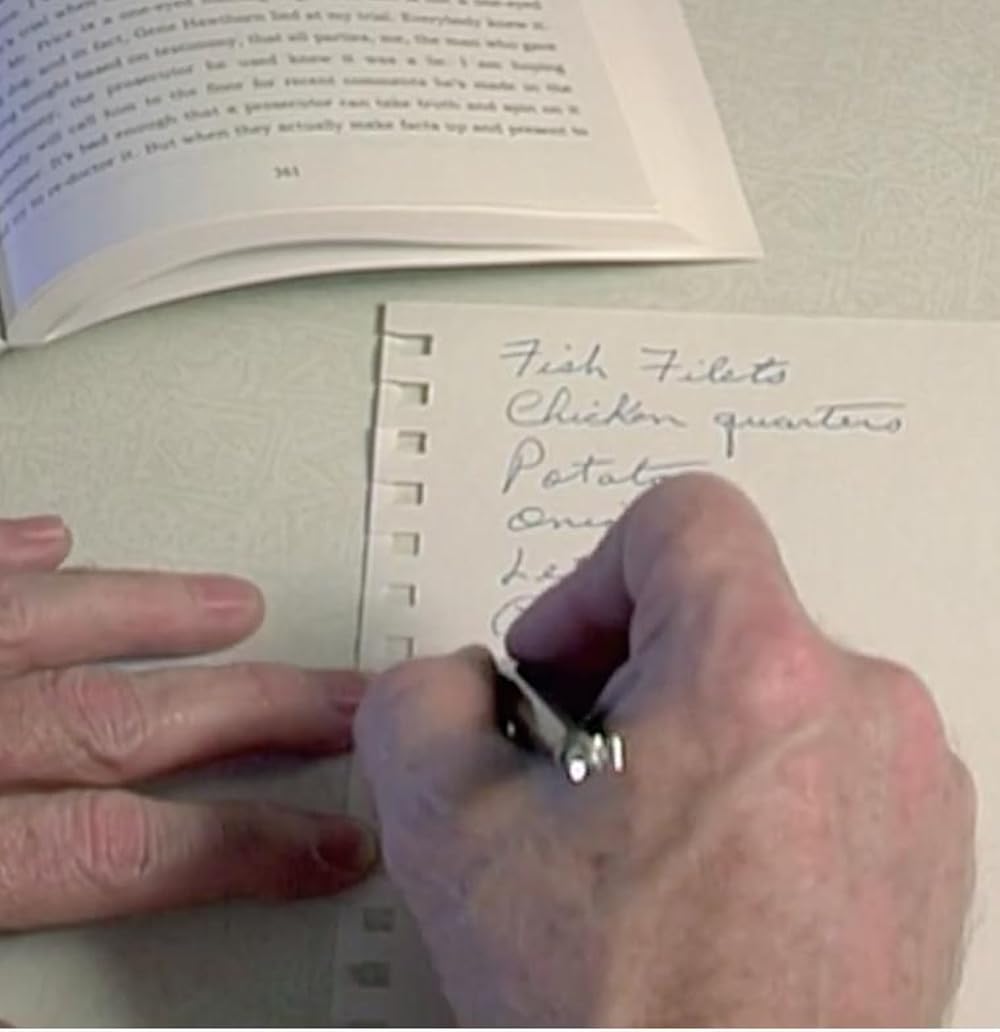 Mr. Price is a one-eyed
and in fact, Gene Hawthorn lied at my trial. Everybody knew it.
might based on testimony, that all parties, me, the man who gave
the prosecutor he used knew it was a lie. I am hoping
will call him to the floor for recent comments he's made in the
It's bad enough that a prosecutor can take truth and spin on it
try to re-doctor it. But when they actually make facts up and present to
361
Fish Filets
Chicken quarters
Potato
Oni
Let